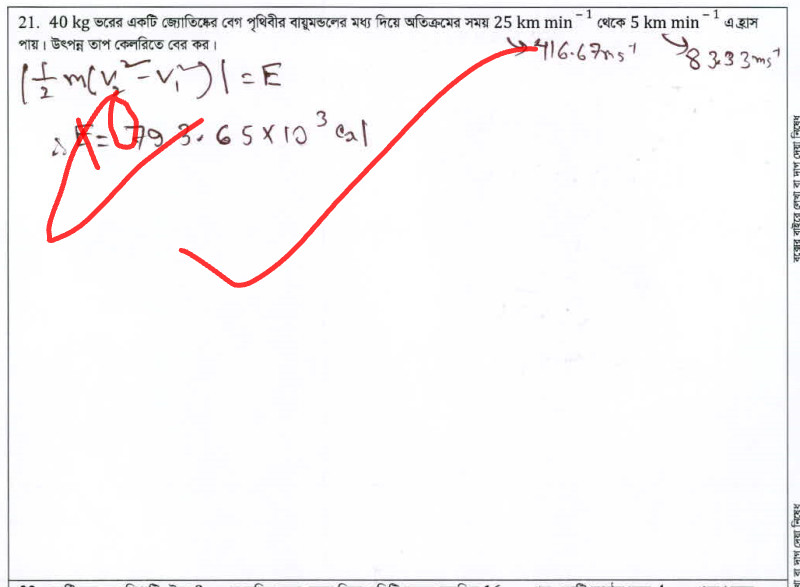 21. 40 kg ভরের একটি জ্যোতিষ্কের বেগ পৃথিবীর বায়ুমন্ডলের মধ্য দিয়ে অতিক্রমের সময় 25 km min⁻¹ থেকে 5 km min⁻¹ এ হ্রাস
পায়। উৎপন্ন তাপ কেলরিতে বের কর।
416.67 ms⁻¹ 83.33 ms⁻¹
|½ m(v₂² - v₁²)| = E
∴ E = 793.65 × 10³ cal
বক্সের বাইরে লেখা বা দাগ দেয়া নিষেধ
বা দাগ দেয়া নিষেধ